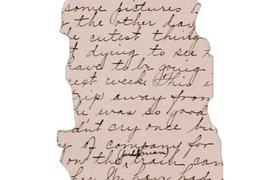 some pictures
the other day
e cutest thing
t dying to see h
have to be going
next week this i
trip away from
he was so good
dn't cry once bu
y. A company for
on the pullman train, can